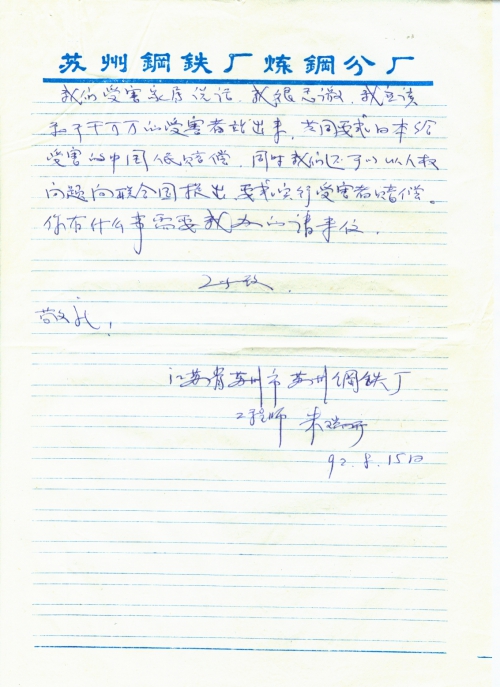 苏州鋼鉄厂炼鋼分厂
我们受害家属说话，我很感谢，我应该
和千千万万的受害者站出来，共同要求日本给
受害的中国人赔偿，同时我们还可以以人权
问题向联合国提出要求实行受害者赔偿。
你有什么事需要我办的请来信，
此致，
敬礼！
江苏省苏州市苏州鋼鉄厂
工程师 朱
92.8.15日